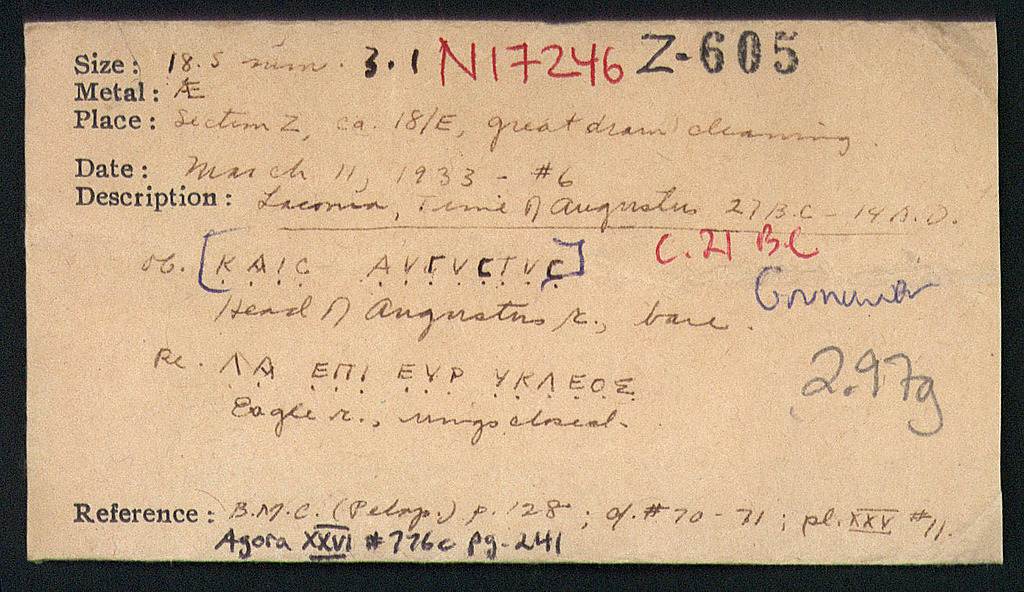 Size: 18.5 mm. 3.1 N17246 Z-605
Metal: Æ
Place: Section Z, ca. 18/E, great drain cleaning.
Date: March 11, 1933 - #6
Description: Laconia, Time of Augustus 27 B.C - 14 A.D.
C. 21 B.C
ob. [ΚΑΙC ΑVΓVCΤVC]
Head of Augustus r., bare.
Re. ΛΑ ΕΠΙ ΕΥΡ ΥΚΛΕΟΣ
2.97g
Eagle r., wings closed.
Reference: B.M.C. (Pelop.) p. 128; cf. #70-71; pl. XXV #11.
Agora XXVI #776c pg-241